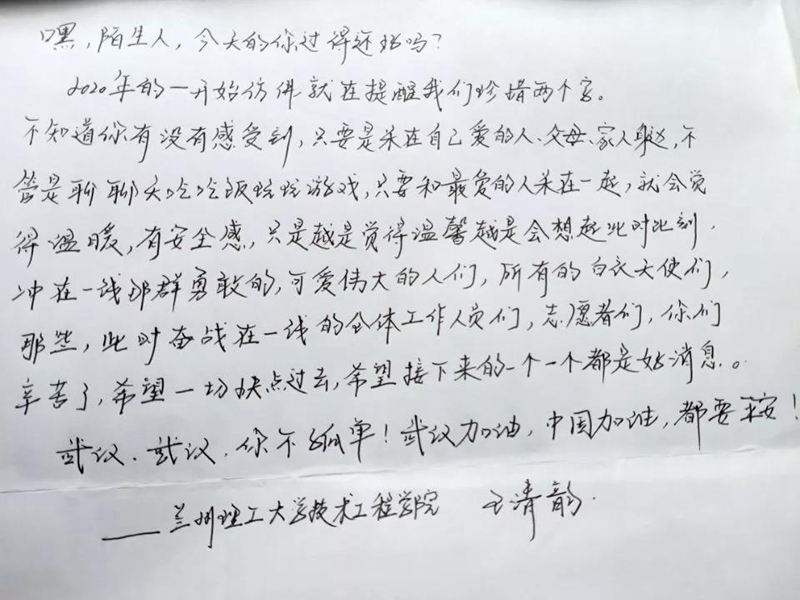 嘿，陌生人，今天的你过得还好吗？
2020年的一开始仿佛就在提醒我们珍惜两个字。
不知道你有没有感受到，只要是呆在自己爱的人、父母、家人身边，不
管是聊聊天吃吃饭玩玩游戏，只要和最爱的人呆在一起，就会觉
得温暖，有安全感，只是越是觉得温馨越是会想起此时此刻，
冲在一线那群勇敢的，可爱伟大的人们，所有的白衣天使们，
那些，此时奋战在一线的全体工作人员们，志愿者们，你们
辛苦了，希望一切快点过去，希望接下来的一个一个都是好消息。
武汉，武汉，你不孤单！武汉加油，中国加油，都要平安！
——兰州理工大学技术工程学院 王清韵.